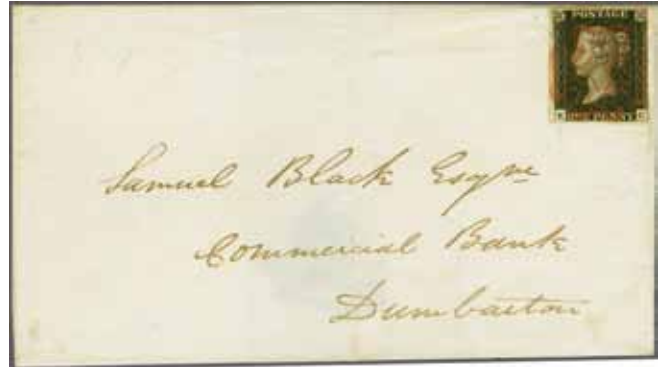 POSTAGE
ONE PENNY
Samuel Black Esqre
Commercial Bank
Dumbarton